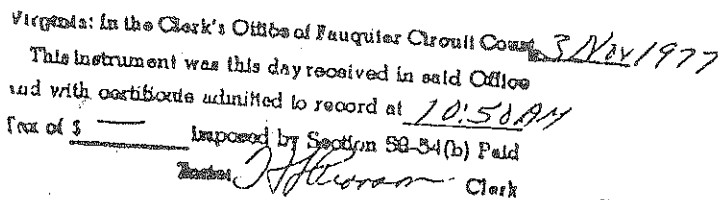 Virginia: In the Clerk's Office of Fauquier Circuit Court 3 Nov 1977
This instrument was this day received in said Office
and with certificate admitted to record at 10:50 AM
Tax of $ — imposed by Section 58-54(b) Paid
Teste: Clerk